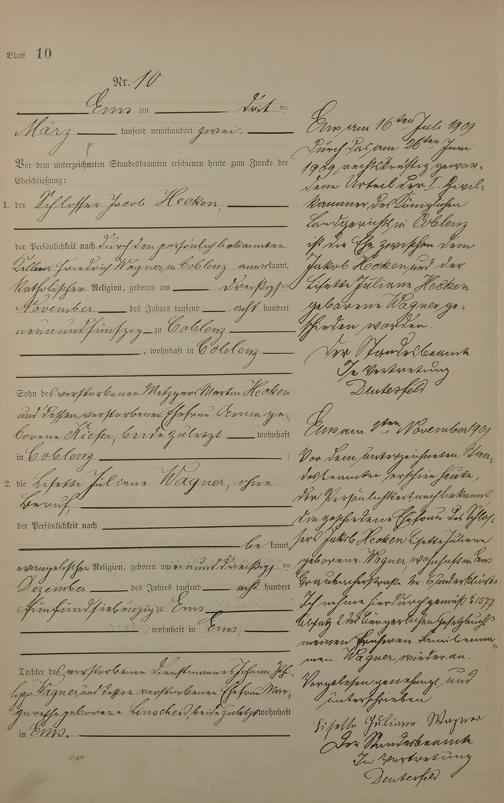 Blatt 10
Nr. 10
Ems am dritten
März tausend neunhundert zwei.
Vor dem unterzeichneten Standesbeamten erschienen heute zum Zwecke der
Eheschließung:
1. der Schlosser Jacob Hecken,
der Persönlichkeit nach durch den persönlich bekannten
Kellner Friedrich Wagner, Coblenz anerkannt,
katholischer Religion, geboren am dreißigsten
November des Jahres tausend acht hundert
neunundfünfzig zu Coblenz
, wohnhaft in Coblenz
Sohn des verstorbenen Metzgers Martin Hecken
und dessen verstorbenen Ehefrau Anna ge-
borene Kiefer, beide zuletzt wohnhaft
in Coblenz
2. die Lisette Juliane Wagner, ohne
Beruf,
der Persönlichkeit nach
be kannt,
evangelischer Religion, geboren am einunddreißigsten
Dezember des Jahres tausend acht hundert
fünfundsiebenzig zu Ems
, wohnhaft in Ems,
Tochter des verstorbenen Dienstmannes Johann Phi-
lipp Wagner und dessen verstorbenen Ehefrau Mar-
garethe geborene beide zuletzt wohnhaft
in Ems.
Ems am 16ten Juli 1909
Durch das am 26ten Juni
1909 rechtskräftig gewor-
dene Urteil der I. Zivil-
kammer des Königlichen
Landgerichts in Coblenz
ist die Ehe zwischen dem
Jakob Hecken und der
Lisette Juliane Hecken
geborene Wagner ge-
schieden worden.
Der Standesbeamte
In Vertretung
Deutesfeld
Ems am 2ten November 1909
Vor dem unterzeichneten Stan-
desbeamten erschien heute,
der Persönlichkeit nach bekannt,
die geschiedene Ehefrau des Schlos-
sers Jakob Hecken Lisette Juliane
geborene Wagner wohnhaft in Ems
Braubacherstraße und erklärte:
Ich nehme hierdurch gemäß § 1577
Absatz 2 des bürgerlichen Gesetzbuchs
meinen früheren Familienna-
men Wagner wieder an.
Vorgelesen, genehmigt und
unterschrieben
Lisette Juliane Wagner
Der Standesbeamte
In Vertretung
Deutesfeld